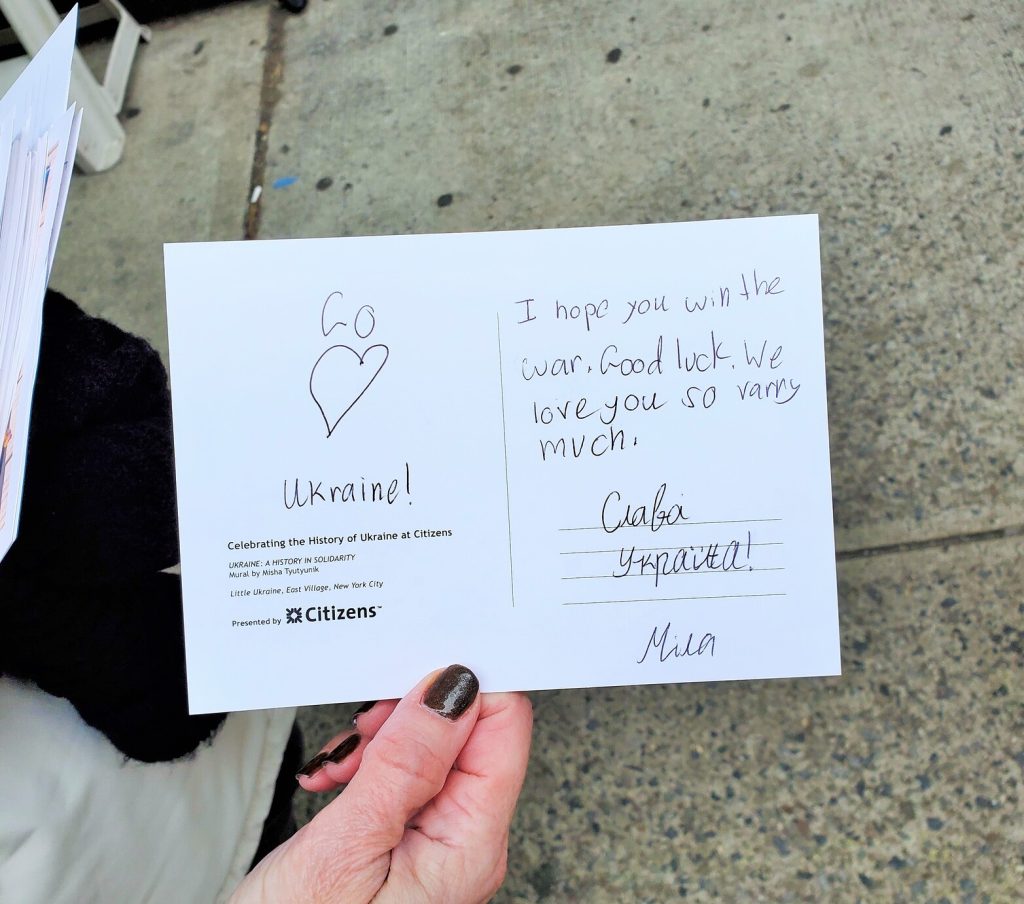 Go
Ukraine!
Celebrating the History of Ukraine at Citizens
UKRAINE: A HISTORY IN SOLIDARITY
Mural by Misha Tyutyunik
Little Ukraine, East Village, New York City
Presented by Citizens™
I hope you win the
war. Good luck. We
love you so varry
much.
Слава
Україна!
Міла